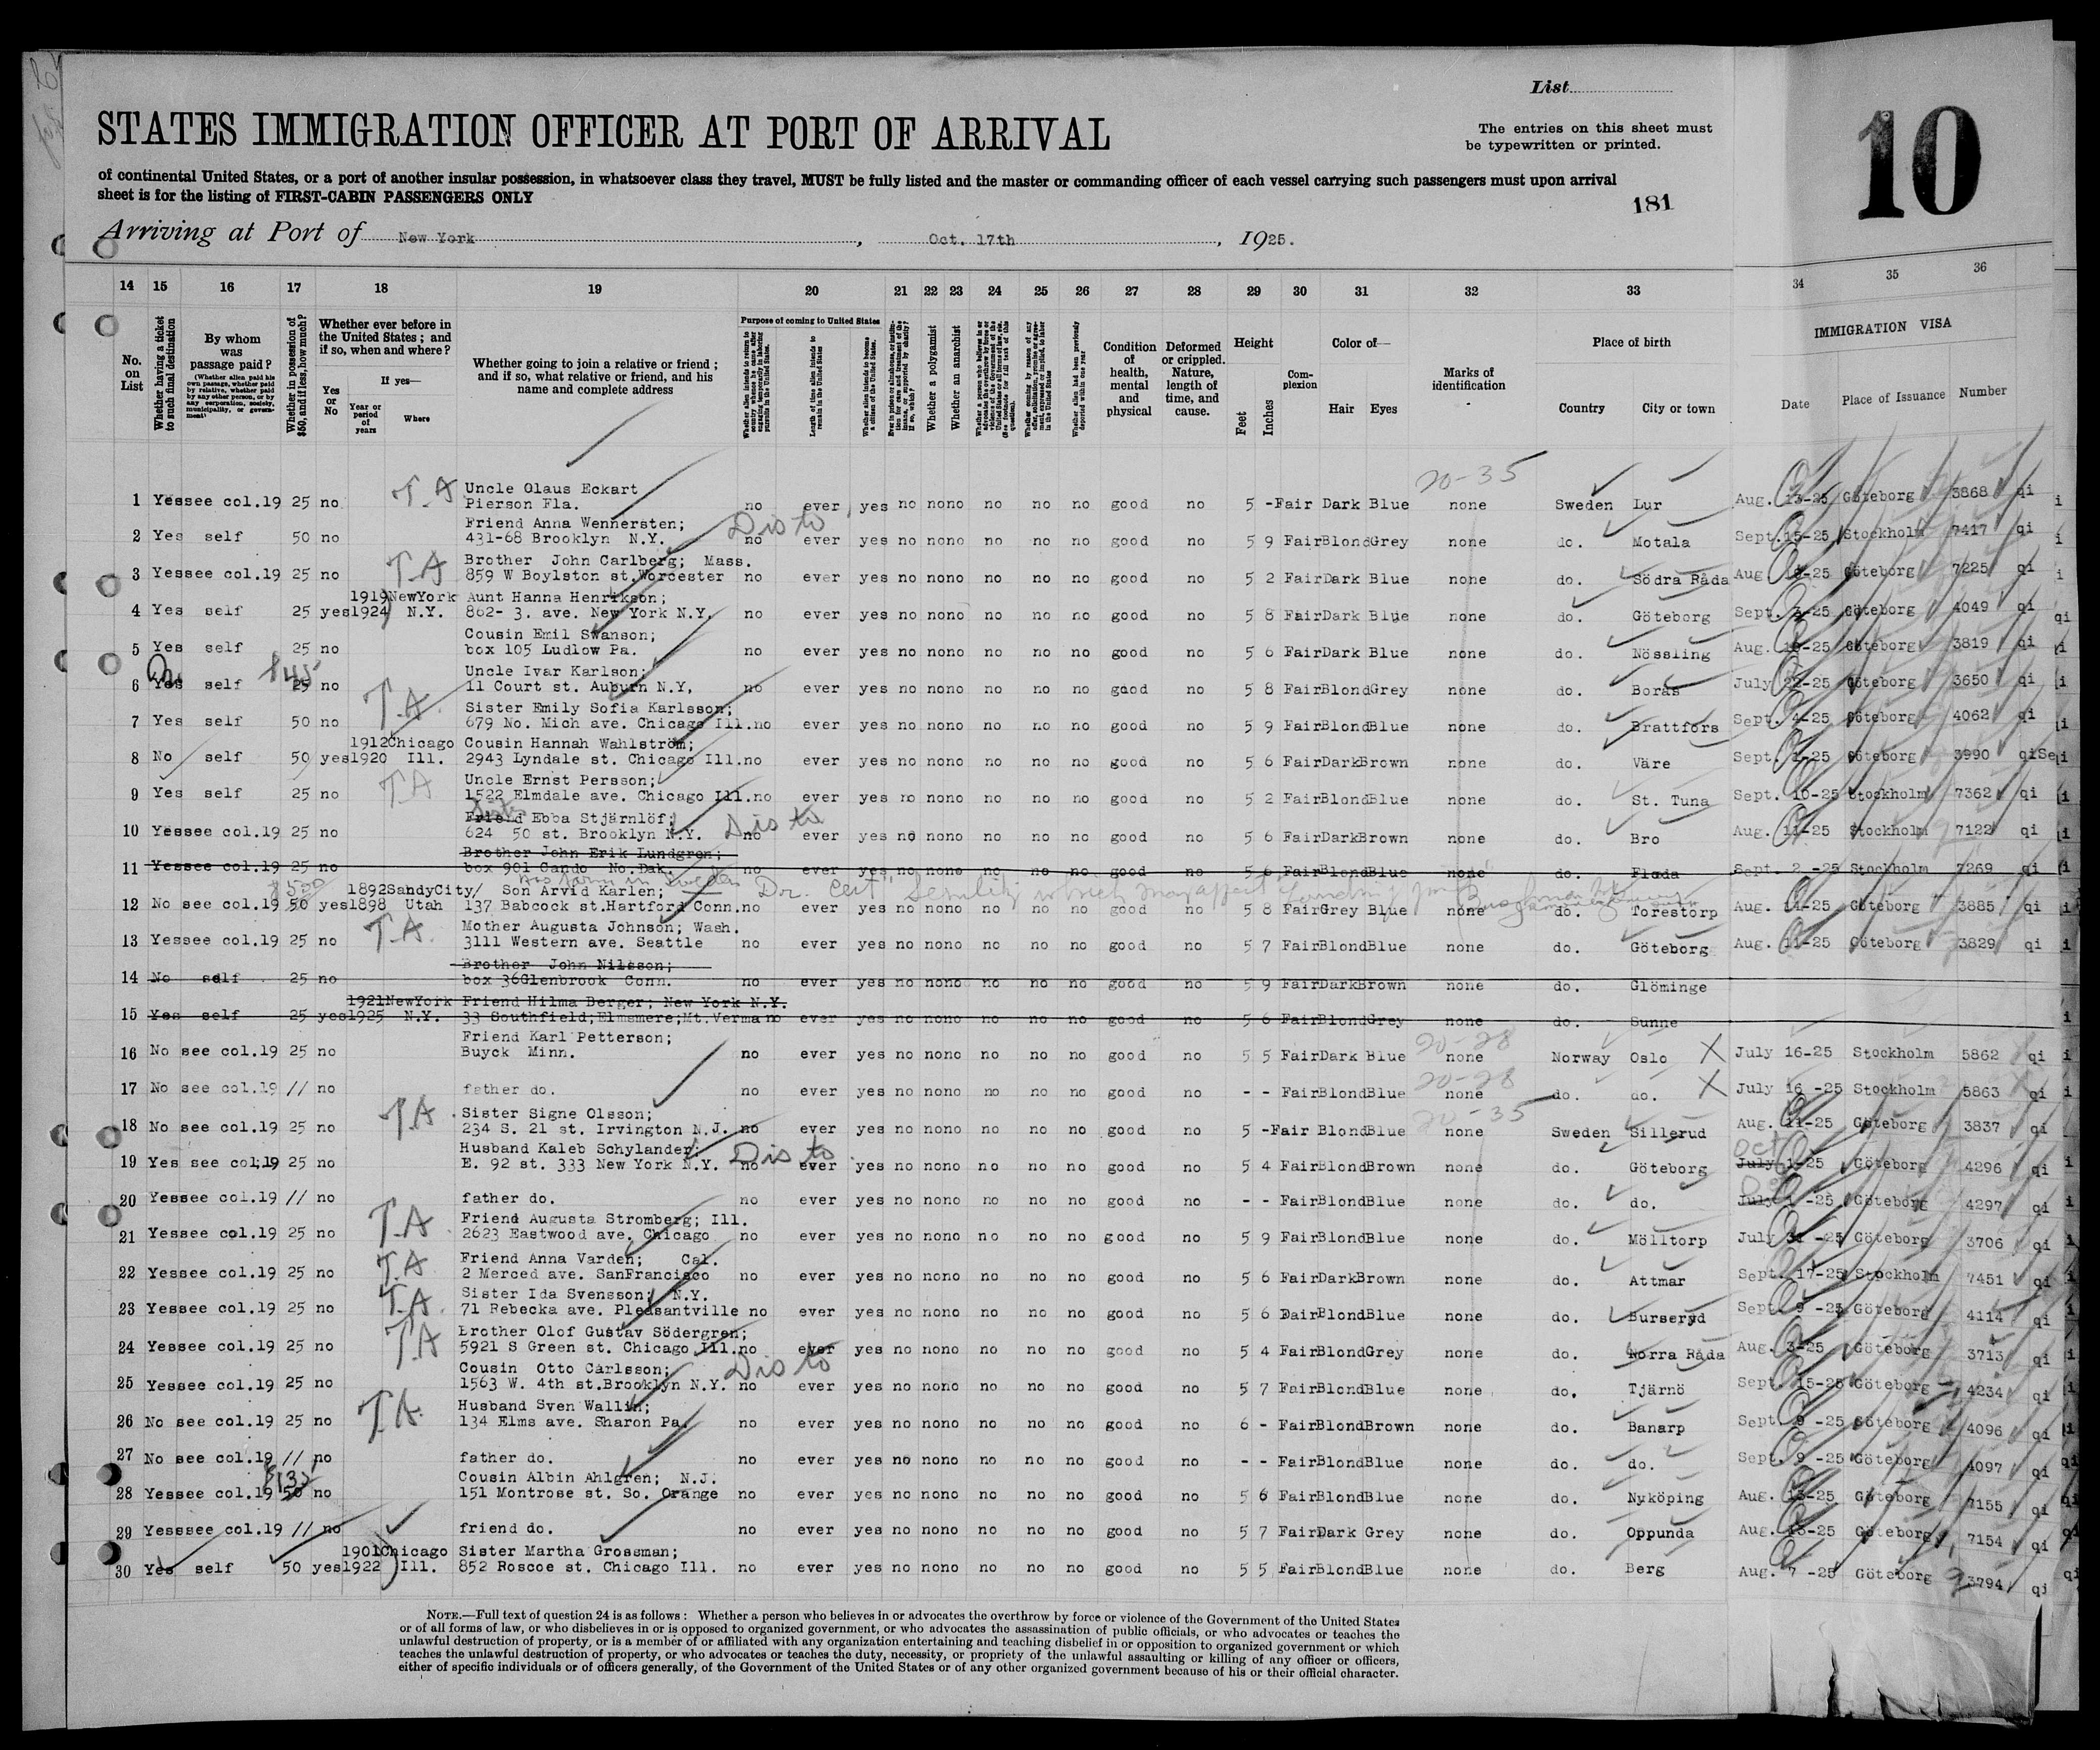 List
10
STATES IMMIGRATION OFFICER AT PORT OF ARRIVAL
The entries on this sheet must
be typewritten or printed.
of continental United States, or a port of another insular possession, in whatsoever class they travel, MUST be fully listed and the master or commanding officer of each vessel carrying such passengers must upon arrival
sheet is for the listing of FIRST-CABIN PASSENGERS ONLY
181
Arriving at Port of New York, Oct. 17th, 1925.
14 15 16 17 18 19 20 21 22 23 24 25 26 27 28 29 30 31 32 33 34 35 36
No. on List
Whether having a ticket to such final destination
By whom was passage paid?
(Whether alien paid his own passage, whether paid by relative, whether paid by any other person, or by any corporation, society, municipality, or government)
Whether in possession of $50, and if less, how much?
Whether ever before in the United States; and if so, when and where?
Yes or No
If yes—
Year or period of years
Where
Whether going to join a relative or friend; and if so, what relative or friend, and his name and complete address
Purpose of coming to United States
Whether alien intends to return to country whence he came after engaging temporarily in laboring pursuits in the United States.
Length of time alien intends to remain in the United States
Whether alien intends to become a citizen of the United States.
Whether a polygamist
Whether an anarchist
Whether alien had been previously deported within one year
Condition of health, mental and physical
Deformed or crippled. Nature, length of time, and cause.
Height
Feet
Inches
Complexion
Color of—
Hair Eyes
Marks of identification
Place of birth
Country City or town
IMMIGRATION VISA
Date Place of Issuance Number
20-35
T.A Uncle Olaus Eckart
1 Yessee col.19 25 no Pierson Fla. no ever yes no nono no no no good no 5 -Fair Dark Blue none Sweden Lur Aug. 13-25 Göteborg 3868 qi
Friend Anna Wennersten; Dis to
2 Yes self 50 no 431-68 Brooklyn N.Y. no ever yes no nono no no no good no 5 9 FairBlondGrey none do. Motala Sept.15-25 Stockholm 7417 qi
T.A Brother John Carlberg; Mass.
3 Yessee col.19 25 no 859 W Boylston st.Worcester no ever yes no nono no no no good no 5 2 FairDark Blue none do. Södra Råda Aug -25 Göteborg 7225 qi
1919NewYork Aunt Hanna Henrikson;
4 Yes self 25 yes1924 N.Y. 862- 3. ave. New York N.Y. no ever yes no nono no no no good no 5 8 FairDark Blue none do. Göteborg Sept. 3-25 Göteborg 4049 qi
Cousin Emil Swanson;
5 Yes self 25 no box 105 Ludlow Pa. no ever yes no nono no no no good no 5 6 FairDark Blue none do. Nössling Aug. -25 Göteborg 3819 qi
$45 Uncle Ivar Karlson;
6 Yes self 25 no 11 Court st. Auburn N.Y, no ever yes no nono no no no good no 5 8 FairBlondGrey none do. Borås July 22-25 Göteborg 3650 qi
T.A. Sister Emily Sofia Karlsson;
7 Yes self 50 no 679 No. Mich ave. Chicago Ill.no ever yes no nono no no no good no 5 9 FairBlondBlue none do. Brattfors Sept. 4-25 Göteborg 4062 qi
1912Chicago Cousin Hannah Wahlström;
8 No self 50 yes1920 Ill. 2943 Lyndale st. Chicago Ill.no ever yes no nono no no no good no 5 6 FairDarkBrown none do. Väre Sept. 1-25 Göteborg 3990 qiSe
TA Uncle Ernst Persson;
9 Yes self 25 no 1522 Elmdale ave. Chicago Ill.no ever yes no nono no no no good no 5 2 FairBlondBlue none do. St. Tuna Sept. 10-25 Stockholm 7362 qi
Friend Ebba Stjärnlöf; Dis to
10 Yessee col.19 25 no 624 50 st. Brooklyn N.Y. no ever yes no nono no no no good no 5 6 FairDarkBrown none do. Bro Aug. 11-25 Stockholm 7122 qi
Brother John Erik Lundgren;
11 Yessee col.19 25 no box 901 Cando No.Dak. no ever yes no nono no no no good no 5 6 FairBlondBlue none do. Floda Sept. 2 -25 Stockholm 7269 qi
has farm in Sweden
1892SandyCity/ Son Arvid Karlen; Dr. Cert "Senility which may affect
12 No see col.19 50 yes1898 Utah 137 Babcock st.Hartford Conn.no ever yes no nono no no no good no 5 8 FairGrey Blue none do. Torestorp Aug. 14-25 Göteborg 3885 qi
T.A. Mother Augusta Johnson; Wash.
13 Yessee col.19 25 no 3111 Western ave. Seattle no ever yes no nono no no no good no 5 7 FairBlondBlue none do. Göteborg Aug. 11-25 Göteborg 3829 qi
Brother John Nilsson;
14 No self 25 no box 36Glenbrook Conn. no ever yes no nono no no no good no 5 9 FairDarkBrown none do. Glöminge
1921NewYork Friend Hilma Berger; New York N.Y.
15 Yes self 25 yes1925 N.Y. 33 Southfield;Elmsmere;Mt.Verma no ever yes no nono no no no good no 5 6 FairBlondGrey none do. Sunne
Friend Karl Petterson; 20-28
16 No see col.19 25 no Buyck Minn. no ever yes no nono no no no good no 5 5 FairDark Blue none Norway Oslo X July 16-25 Stockholm 5862 qi
20-28
17 No see col.19 // no father do. no ever yes no nono no no no good no - - FairBlondBlue none do. do. X July 16 -25 Stockholm 5863 qi
T.A Sister Signe Olsson; 20-35
18 No see col.19 25 no 234 S. 21 st. Irvington N.J. no ever yes no nono no no no good no 5 -Fair BlondBlue none Sweden Sillerud Aug. 11-25 Göteborg 3837 qi
Husband Kaleb Schylander; Dis to Oct
19 Yes see col;19 25 no E. 92 st. 333 New York N.Y. no ever yes no nono no no no good no 5 4 FairBlondBrown none do. Göteborg July 1-25 Göteborg 4296 qi
20 Yessee col.19 // no father do. no ever yes no nono no no no good no - - FairBlondBlue none do. do. July 1 -25 Göteborg 4297 qi
T.A Friend Augusta Stromberg; Ill.
21 Yessee col.19 25 no 2623 Eastwood ave. Chicago no ever yes no nono no no no good no 5 9 FairBlondBlue none do. Mölltorp July 31 -25 Göteborg 3706 qi
T.A Friend Anna Varden; Cal.
22 Yessee col.19 25 no 2 Merced ave. SanFrancisco no ever yes no nono no no no good no 5 6 FairDarkBrown none do. Attmar Sept. 17-25 Stockholm 7451 qi
T.A. Sister Ida Svensson; N.Y.
23 Yessee col.19 25 no 71 Rebecka ave. Pleasantville no ever yes no nono no no no good no 5 6 DairBlondBlue none do. Burseryd Sept. 9 -25 Göteborg 4114 qi
T.A Brother Olof Gustav Södergren;
24 Yessee col.19 25 no 5921 S Green st. Chicago Ill.no ever yes no nono no no no good no 5 4 FairBlondGrey none do. Norra Råda Aug. 3-25 Göteborg 3713 qi
Cousin Otto Carlsson; Dis to
25 Yessee col.19 25 no 1563 W. 4th st.Brooklyn N.Y. no ever yes no nono no no no good no 5 7 FairBlondBlue none do. Tjärnö Sept. 15-25 Göteborg 4234 qi
T.A. Husband Sven Wallin;
26 No see col.19 25 no 134 Elms ave. Sharon Pa. no ever yes no nono no no no good no 6 - FairBlondBrown none do. Banarp Sept. 9 -25 Göteborg 4096 qi
27 No see col.19 // no father do. no ever yes no nono no no no good no - - FairBlondBlue none do. do. Sept. 9 -25 Göteborg 4097 qi
$135 Cousin Albin Ahlgren; N.J.
28 Yessee col.19 50 no 151 Montrose st. So. Orange no ever yes no nono no no no good no 5 6 FairBlondBlue none do. Nyköping Aug. 13-25 Göteborg 7155 qi
29 Yesssee col.19 // no friend do. no ever yes no nono no no no good no 5 7 FairDark Grey none do. Oppunda Aug. 13-25 Göteborg 7154 qi
1901Chicago Sister Martha Grossman;
30 Yes self 50 yes1922 Ill. 852 Roscoe st. Chicago Ill. no ever yes no nono no no no good no 5 5 FairBlondBlue none do. Berg Aug. 7 -25 Göteborg 3794 qi
NOTE.—Full text of question 24 is as follows: Whether a person who believes in or advocates the overthrow by force or violence of the Government of the United States
or of all forms of law, or who disbelieves in or is opposed to organized government, or who advocates the assassination of public officials, or who advocates or teaches the
unlawful destruction of property, or is a member of or affiliated with any organization entertaining and teaching disbelief in or opposition to organized government or which
teaches the unlawful destruction of property, or who advocates or teaches the duty, necessity, or propriety of the unlawful assaulting or killing of any officer or officers,
either of specific individuals or of officers generally, of the Government of the United States or of any other organized government because of his or their official character.